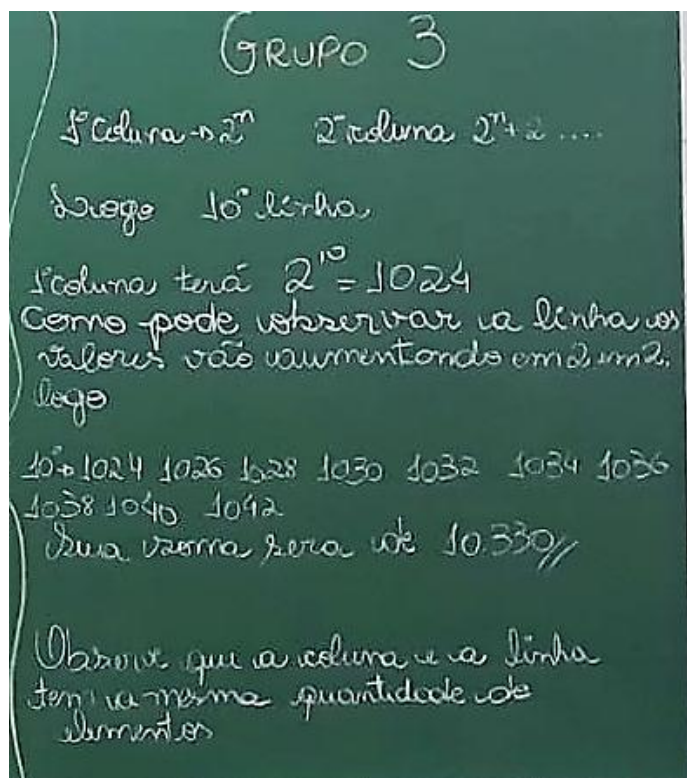 GRUPO 3
1ª Coluna → 2ⁿ 2ª coluna 2ⁿ+2 ....
Logo 10ª linha
1ª coluna terá 2¹⁰ = 1024
Como pode observar a linha os
valores vão aumentando em 2 em 2,
logo
10ª → 1024 1026 1028 1030 1032 1034 1036
1038 1040 1042
Sua soma sera de 10.330//
Observe que a coluna e a linha
tem a mesma quantidade de
elementos